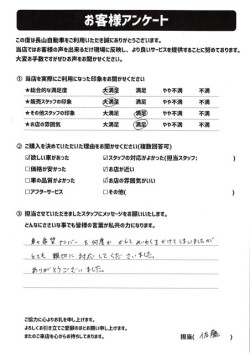 お客様アンケート
この度は長山自動車をご利用いただき誠にありがとうございます。
当店ではお客様の声を出来るだけ現場に反映し、より良いサービスを提供することに努めております。
大変お手数ですがぜひお声をお聞かせください。
① 当店を実際にご利用になった印象をお聞かせください
★総合的な満足度 大満足 満足 やや不満 不満
★販売スタッフの印象 大満足 満足 やや不満 不満
★その他スタッフの印象 大満足 満足 やや不満 不満
★お店の雰囲気 大満足 満足 やや不満 不満
② ご購入を決めていただいた理由をお聞かせください(複数回答可)
☑欲しい車があった ☑スタッフの対応がよかった(担当スタッフ: )
□価格が安かった □お店が近い
□車の品質がよかった ☑お店の雰囲気がいい
□アフターサービス □その他( )
③ 担当させていただきましたスタッフにメッセージをお願いいたします。
どんなにささいな事でも皆様の言葉が私共の力になります。
車の希望ナンバーを何度か
とても 親切に 対応して くださいました。
ありがとうございました。
ご協力に心よりお礼を申し上げます。
よろしくお引き立てご愛顧のほどお願い申し上げます。
またのご来店を心からお待ちしております。
担当( 佐藤 )